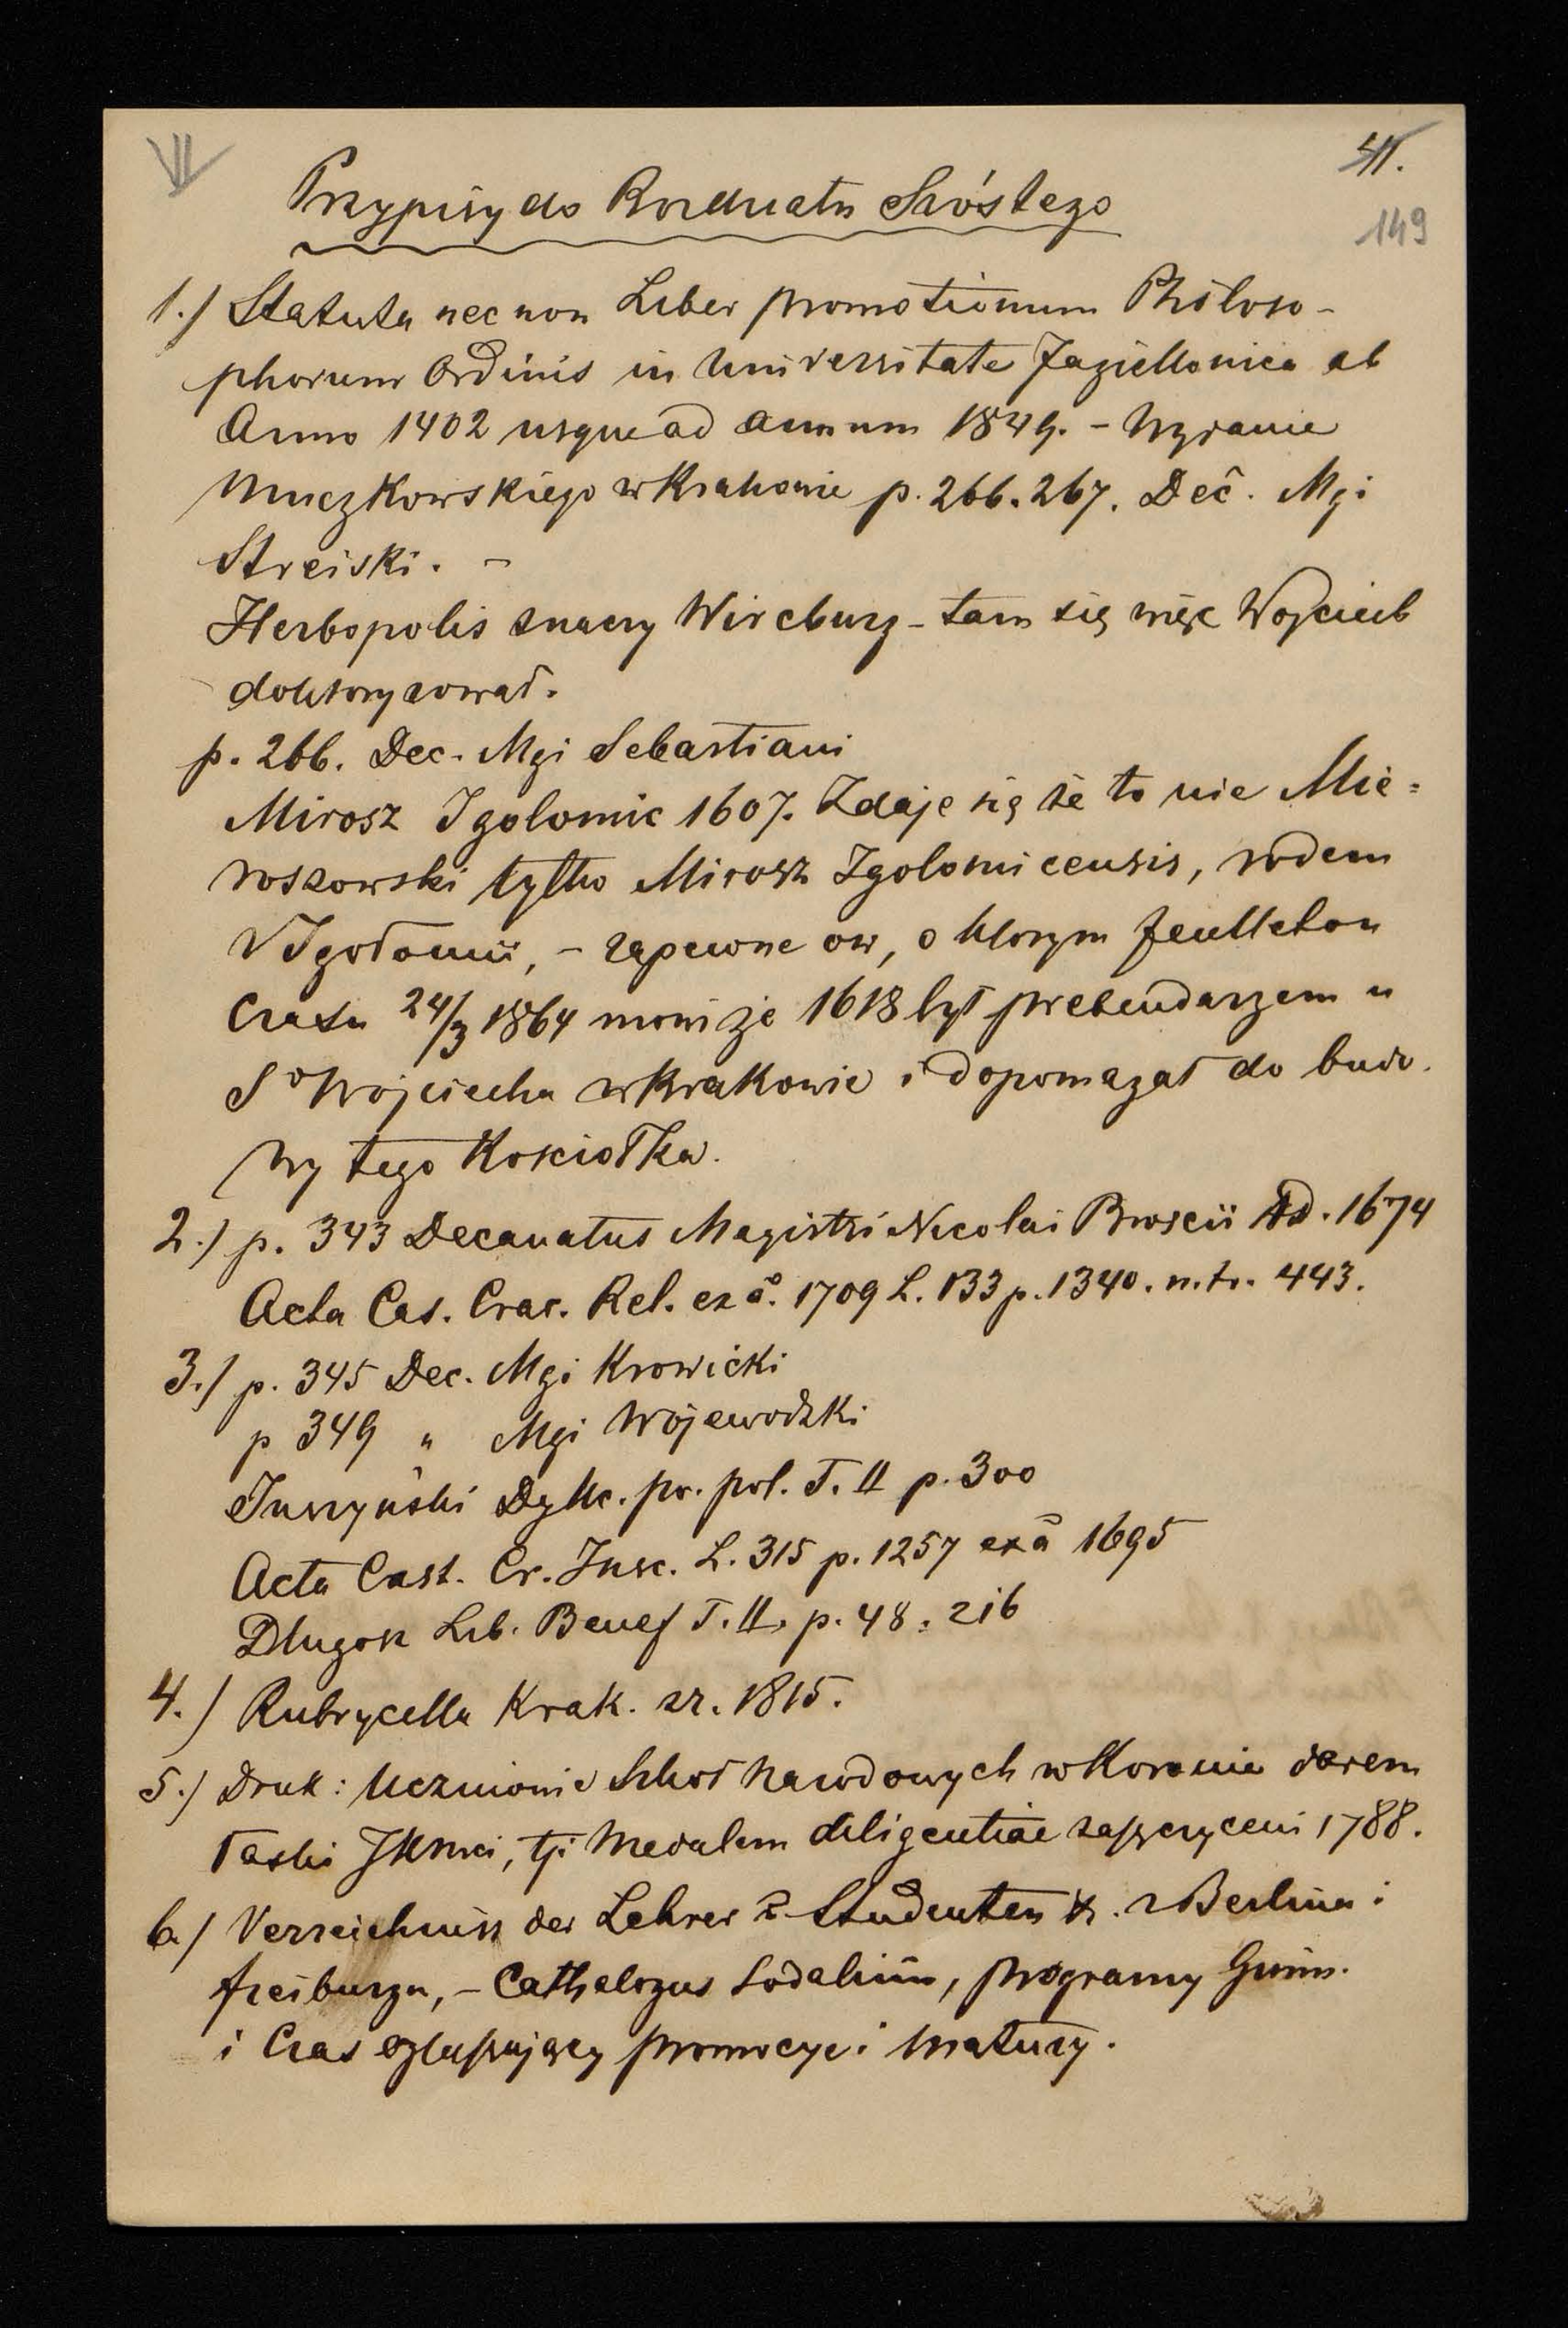 41.
149
Przypisy do Rozdziału Szóstego
1.) Statuta nec non Liber promotionum Philoso-
phorum Ordinis in Universitate Jagiellonica ab
Anno 1402 usque ad annum 1849. - Wydanie
Muczkowskiego w Krakowie p. 266. 267. Dec. Mgi
Streiski. -
Herbopolis znaczy Wircburg - tam się więc Wojciech
doktoryzował.
p. 266. Dec. Mgi Sebastiani
Mirosz Igolomic 1607. Zdaje się że to nie Mie=
roszowski tylko Mirosz Igolomicensis, rodem
z Igołomii, - zapewne ow, o ktorym feulleton
Czasu 24/3 1864 mowi że 1618 był prebendarzem u
So Wojciecha w Krakowie i dopomagał do budo-
wy tego Kosciołka.
2.) p. 343 Decanatus Magistri Nicolai Broscii Ad. 1674
Acta Cas. Crac. Rel. ex a. 1709 L. 133 p. 1340. n. tr. 443.
3.) p. 345 Dec. Mgi Krowicki
p 349 " Mgi Wojewodzki
Juszyński Dykc. po. pol. T. II p. 300
Acta Cast. Cr. Insc. L. 315 p. 1257 ex a 1695
Długosz Lib. Benef T. II. p. 48. 216
4.) Rubrycella Krak. z r. 1815.
5.) Druk: Uczniowie Szkoł Narodowych w Koronie darem
łaski JKMci, tj. Medalem diligentiae zaszczyceni 1788.
6.) Verzeichniss der Lehrer & Studenten &. z Berlina i
Freiburga, - Cathalogus Sodalium, programy Gimn.
i Czas ogłaszający promocye i matury.